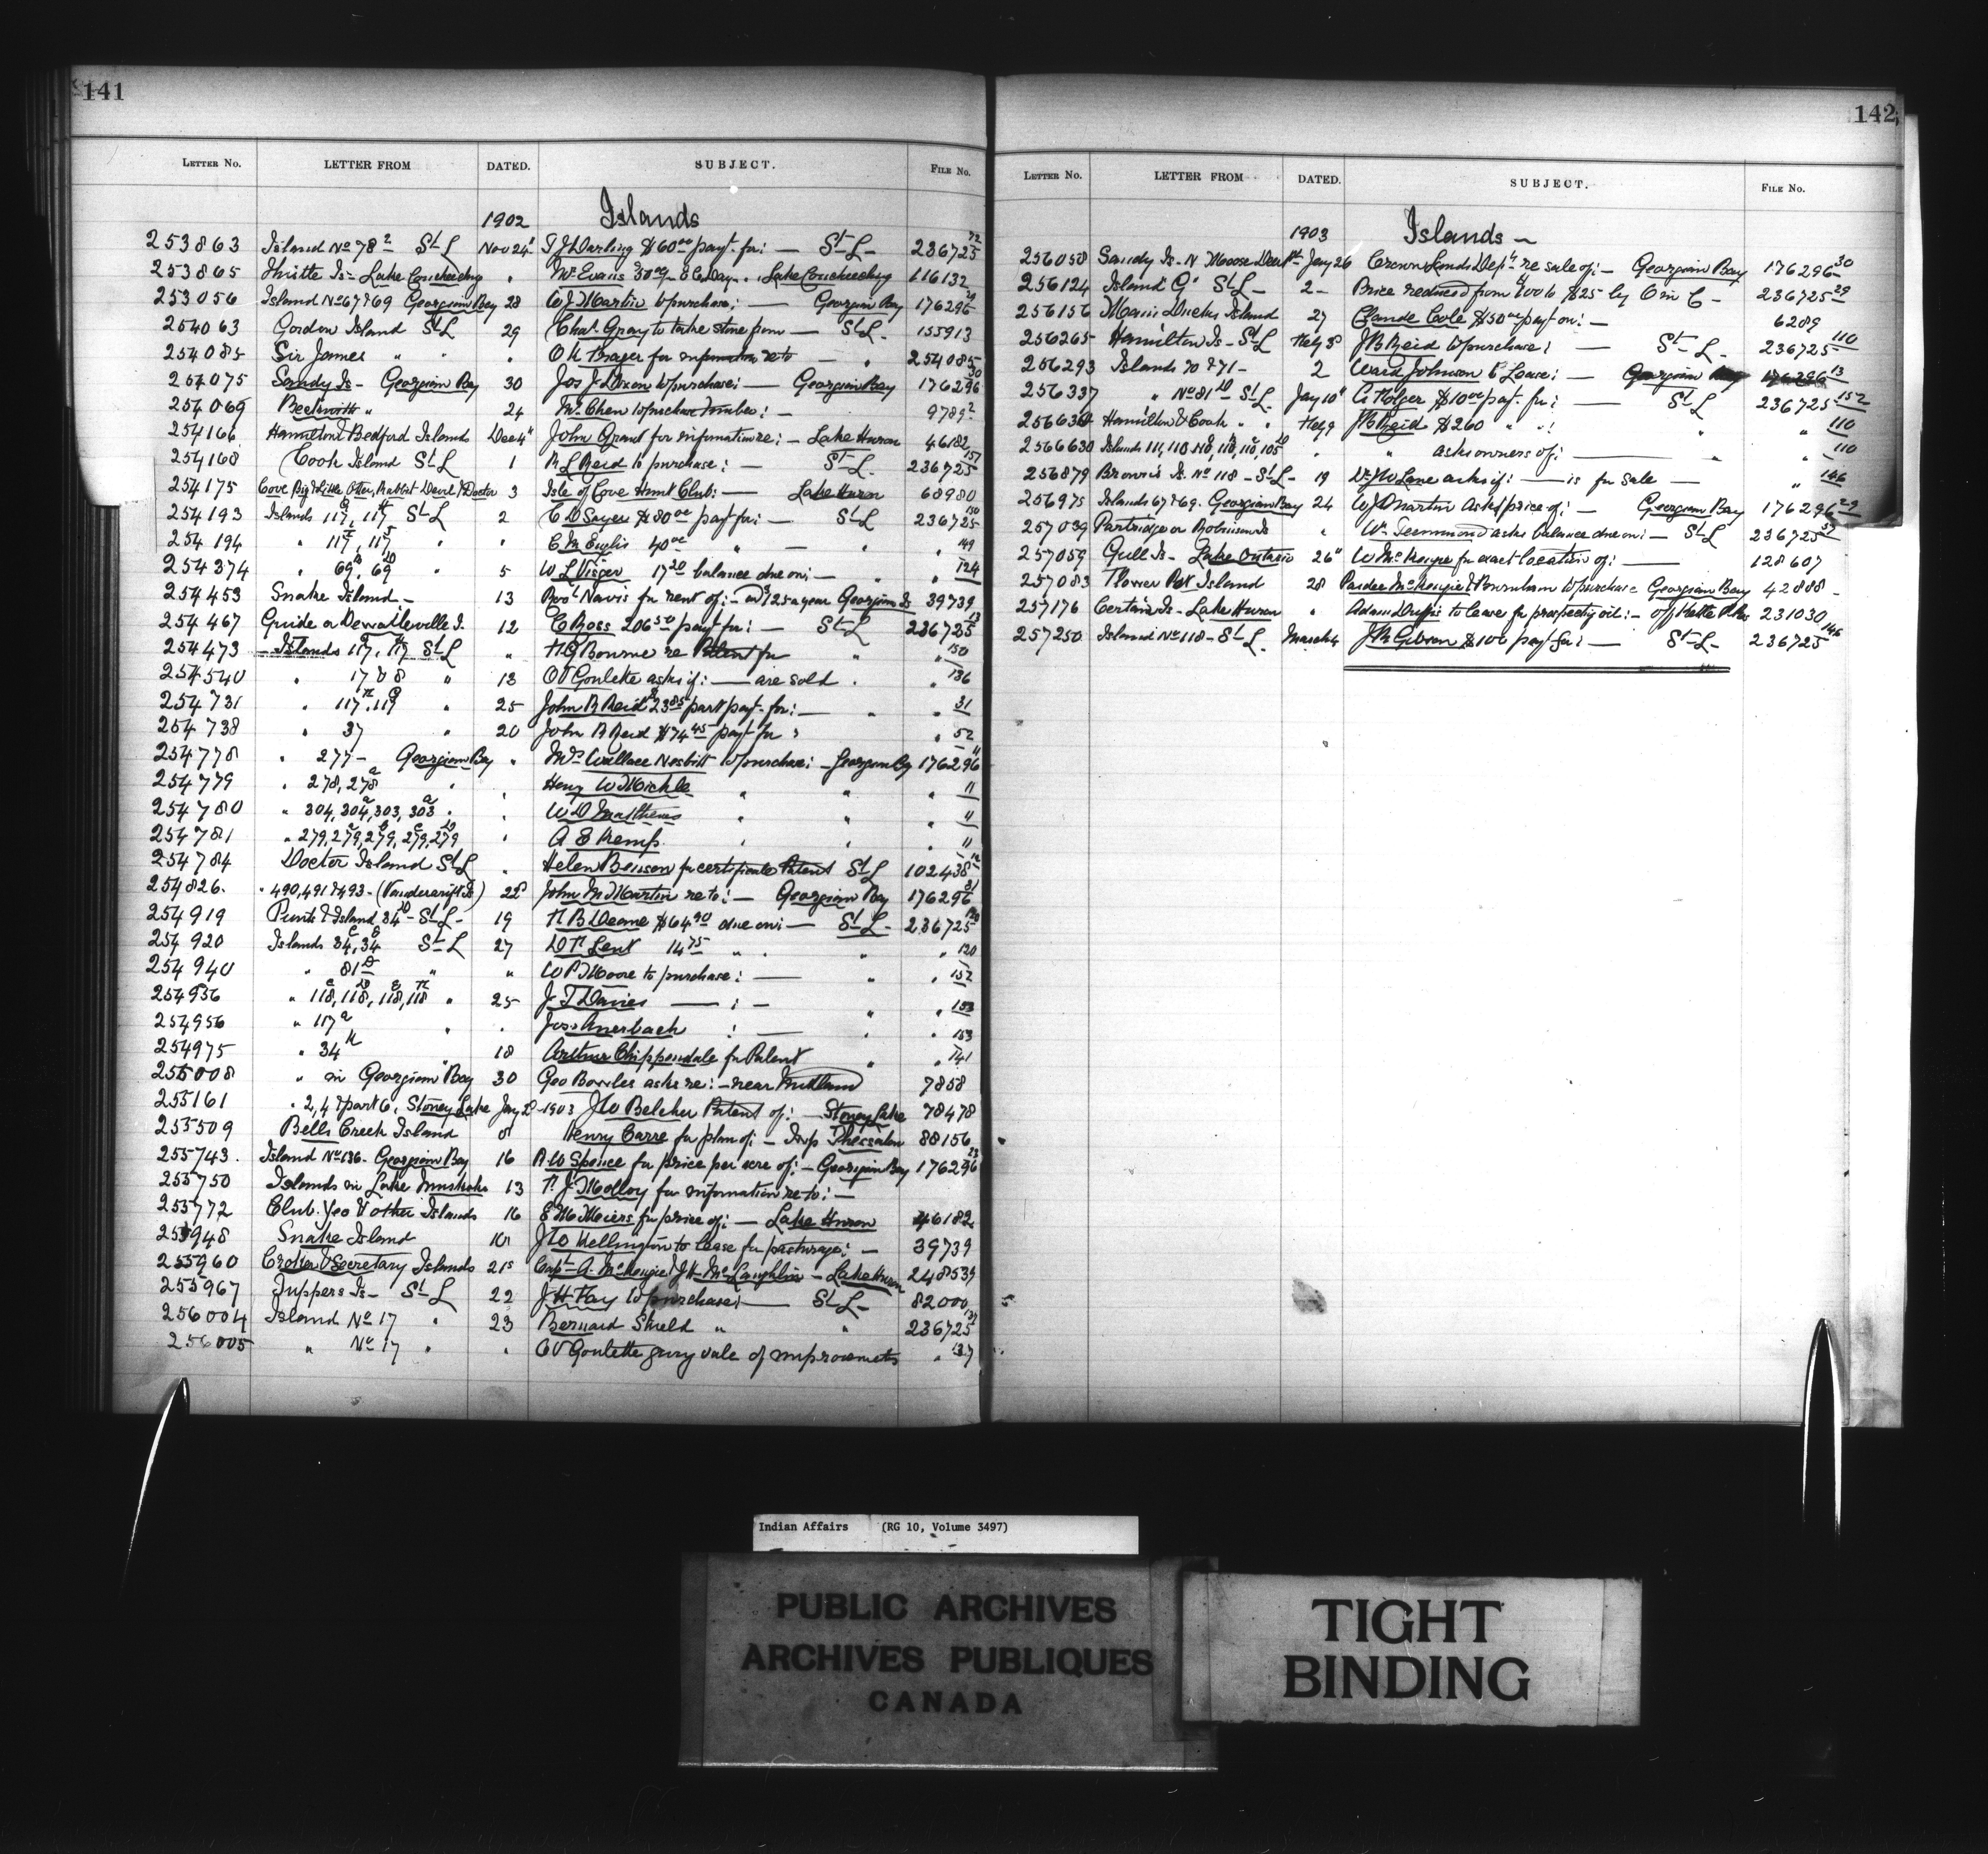 141
LETTER NO. LETTER FROM DATED. SUBJECT. FILE NO.
1902 Islands
253863 Island No 78 2 St L Nov 24 T J Darling $60 00 payt. for: — St L - 236725 72
253865 Thistle Is - Lake Couchiching " Mr Evans Lake Couchiching 116132
253056 Island No 67 & 69 Georgian Bay 28 W J Martin to purchase; — Georgian Bay 176296 29
254063 Gordon Island St L 29 Chas. Gray to take stone from — St L. 155913
254085 Sir James " " " O K Prager for information re to — " 254085
254075 Sandy Is - Georgian Bay 30 Jos J Dixon to purchase: — Georgian Bay 176296 30
254069 Beckwith " 24 Mr. Chew to purchase timber: — 9789 2
254166 Hamilton & Bedford Islands Dec 4" John Grant for information re: — Lake Huron 46182
254168 Cook Island St L 1 R L Reid to purchase: — St L. 236725 151
254175 Cove Big & Little Otter, Rabbit Devil & Doctor 3 Isle of Cove Hunt Club: — Lake Huron 68980
254193 Islands 117, 117 St L 2 C D Sayer $80 00 payt for: — St L 236725 150
254194 " 117, 117, " " E M Englis 40 00 " — " " 149
254374 " 69 B, 69 D " 5 W L Visger 17 20 balance due on: — " " 124
254453 Snake Island - 13 Robt Navis for rent of: — $125 a year Georgian Is 39739
254467 Guide or Dewattleville I. 12 C Ross 206 50 payt for: — St L 236725 13
254473 Islands 117, 117 St L " H G Bourne re Patent for " " 150
254540 " 17 & 8 " 13 O V Goulette asks if: — are sold " " 136
254731 " 117, 119 " 25 John R Reid 23 85 part payt. for: — " " 31
254738 " 37 " 20 John R Reid $74 45 payt for : " 52
254778 " 277 - Georgian Bay " Mrs Wallace Nesbitt to purchase: — Georgian By 176296 11
254779 " 278, 278 a " " Henry W Mickle " " " 11
254780 " 304, 304 a, 303, 303 a " " W D Matthews " " " 11
254781 " 279, 279 a, 279 B, 279 C, 279 D " A E Kemp " " " 11
254784 Doctor Island St L " Helen Benson for certificate Patent St L 102438 12
254826. " 490, 491 & 493 - (Vandergrift Is) 22 John M Martin re to: — Georgian Bay 176296 31
254919 Punts Island 34 D - St L - 19 H B Deane $64 90 due on: — St L - 236725 120
254920 Islands 34, 34 St L 27 D H Lent 14 75 " " " " 120
254940 " 81 D " " W P Moore to purchase: — " " 152
254956 " 118, 118, 118, 118 " 25 J T Davies — : — " " 153
254956 " 117 a " " Jos. Auerbach : — " 153
254975 " 34 K 18 Arthur Chippendale for Patent " " 141
255008 " in Georgian Bay 30 Geo Bowles asks re: — near Midland 7858
255161 " 2, 4 & part 6, Stoney Lake Jany 2 - 1903 J W Belcher Patent of: — Stoney Lake 78478
255509 Bells Creek Island 8 Henry Carre for plan of: — Twp Thessalon 88156
255743. Island No 136 - Georgian Bay 16 R W Spence for price per acre of: — Georgian Bay 176296 23
255750 Islands in Lake Muskoka 13 T. J. Molloy for information re to: —
255772 Club. Yeo & other Islands 16 E M Meiers for price of: — Lake Huron 46182
255948 Snake Island 10 J W Wellington to lease for pasturage: — 39739
255960 Croker & Secretary Islands 21s Capt A. McKenzie & J H McLaughlin — Lake Huron 248539
255967 Tuppers Is - St L 22 J H Fay to purchase: — St L - 82000
256004 Island No 17 " 23 Bernard Shield " " 236725 137
256005 " No 17 " " O V Goulette giving value of improvements " 137
142
LETTER NO. LETTER FROM DATED. SUBJECT. FILE NO.
1903 Islands -
256050 Sandy Is - N Moose Deer Pt. Jany 26 Crown Lands Dept re sale of: — Georgian Bay 176296 30
256124 Island G' St L - 2 - Price reduced from 100 to $25 by O in C - 236725 29
256156 Main Ducks Island 27 Claude Cole $50 00 payt on: — 6289
256265 Hamilton Is - St L Feby 3 J R Reid to purchase: — St L - 236725 110
256293 Islands 70 & 71 - 2 Ward Johnson to Lease: — Georgian Bay 176296 13
256337 " No 81 D St L Jany 10" C Folger $10 00 payt. for: — St L 236725 152
256630 Hamilton & Cook " " Feby 9 J R Reid $260 " ": " " 110
2566630 Islands 111, 110, 118, 118, 118, 105 " asks owners of: — " " 110
256879 Browns Is. No 118 - St L - 19 Dr J W Lane asks if: — is for sale — " 146
256975 Islands 67 & 69. Georgian Bay 24 W J Martin Asks price of: — Georgian Bay 176296 29
257039 Partridge or Robinson Is " Wm Teemmond asks balance due on: — St L 236725
257059 Gull Is - Lake Ontario 26" W McKenzie for exact location of: — 128607
257083 Flower Pot Island 28 Pardee McKenzie & Burnham to purchase Georgian Bay 42888 -
257176 Certain Is - Lake Huron " Adam Duffis to lease for prospectg oil: — 231030
257250 Island No 118 - St L. March 4 J M Gibson $100 payt for: — St L - 236725 146
Indian Affairs (RG 10, Volume 3497)
PUBLIC ARCHIVES
ARCHIVES PUBLIQUES
CANADA
TIGHT
BINDING